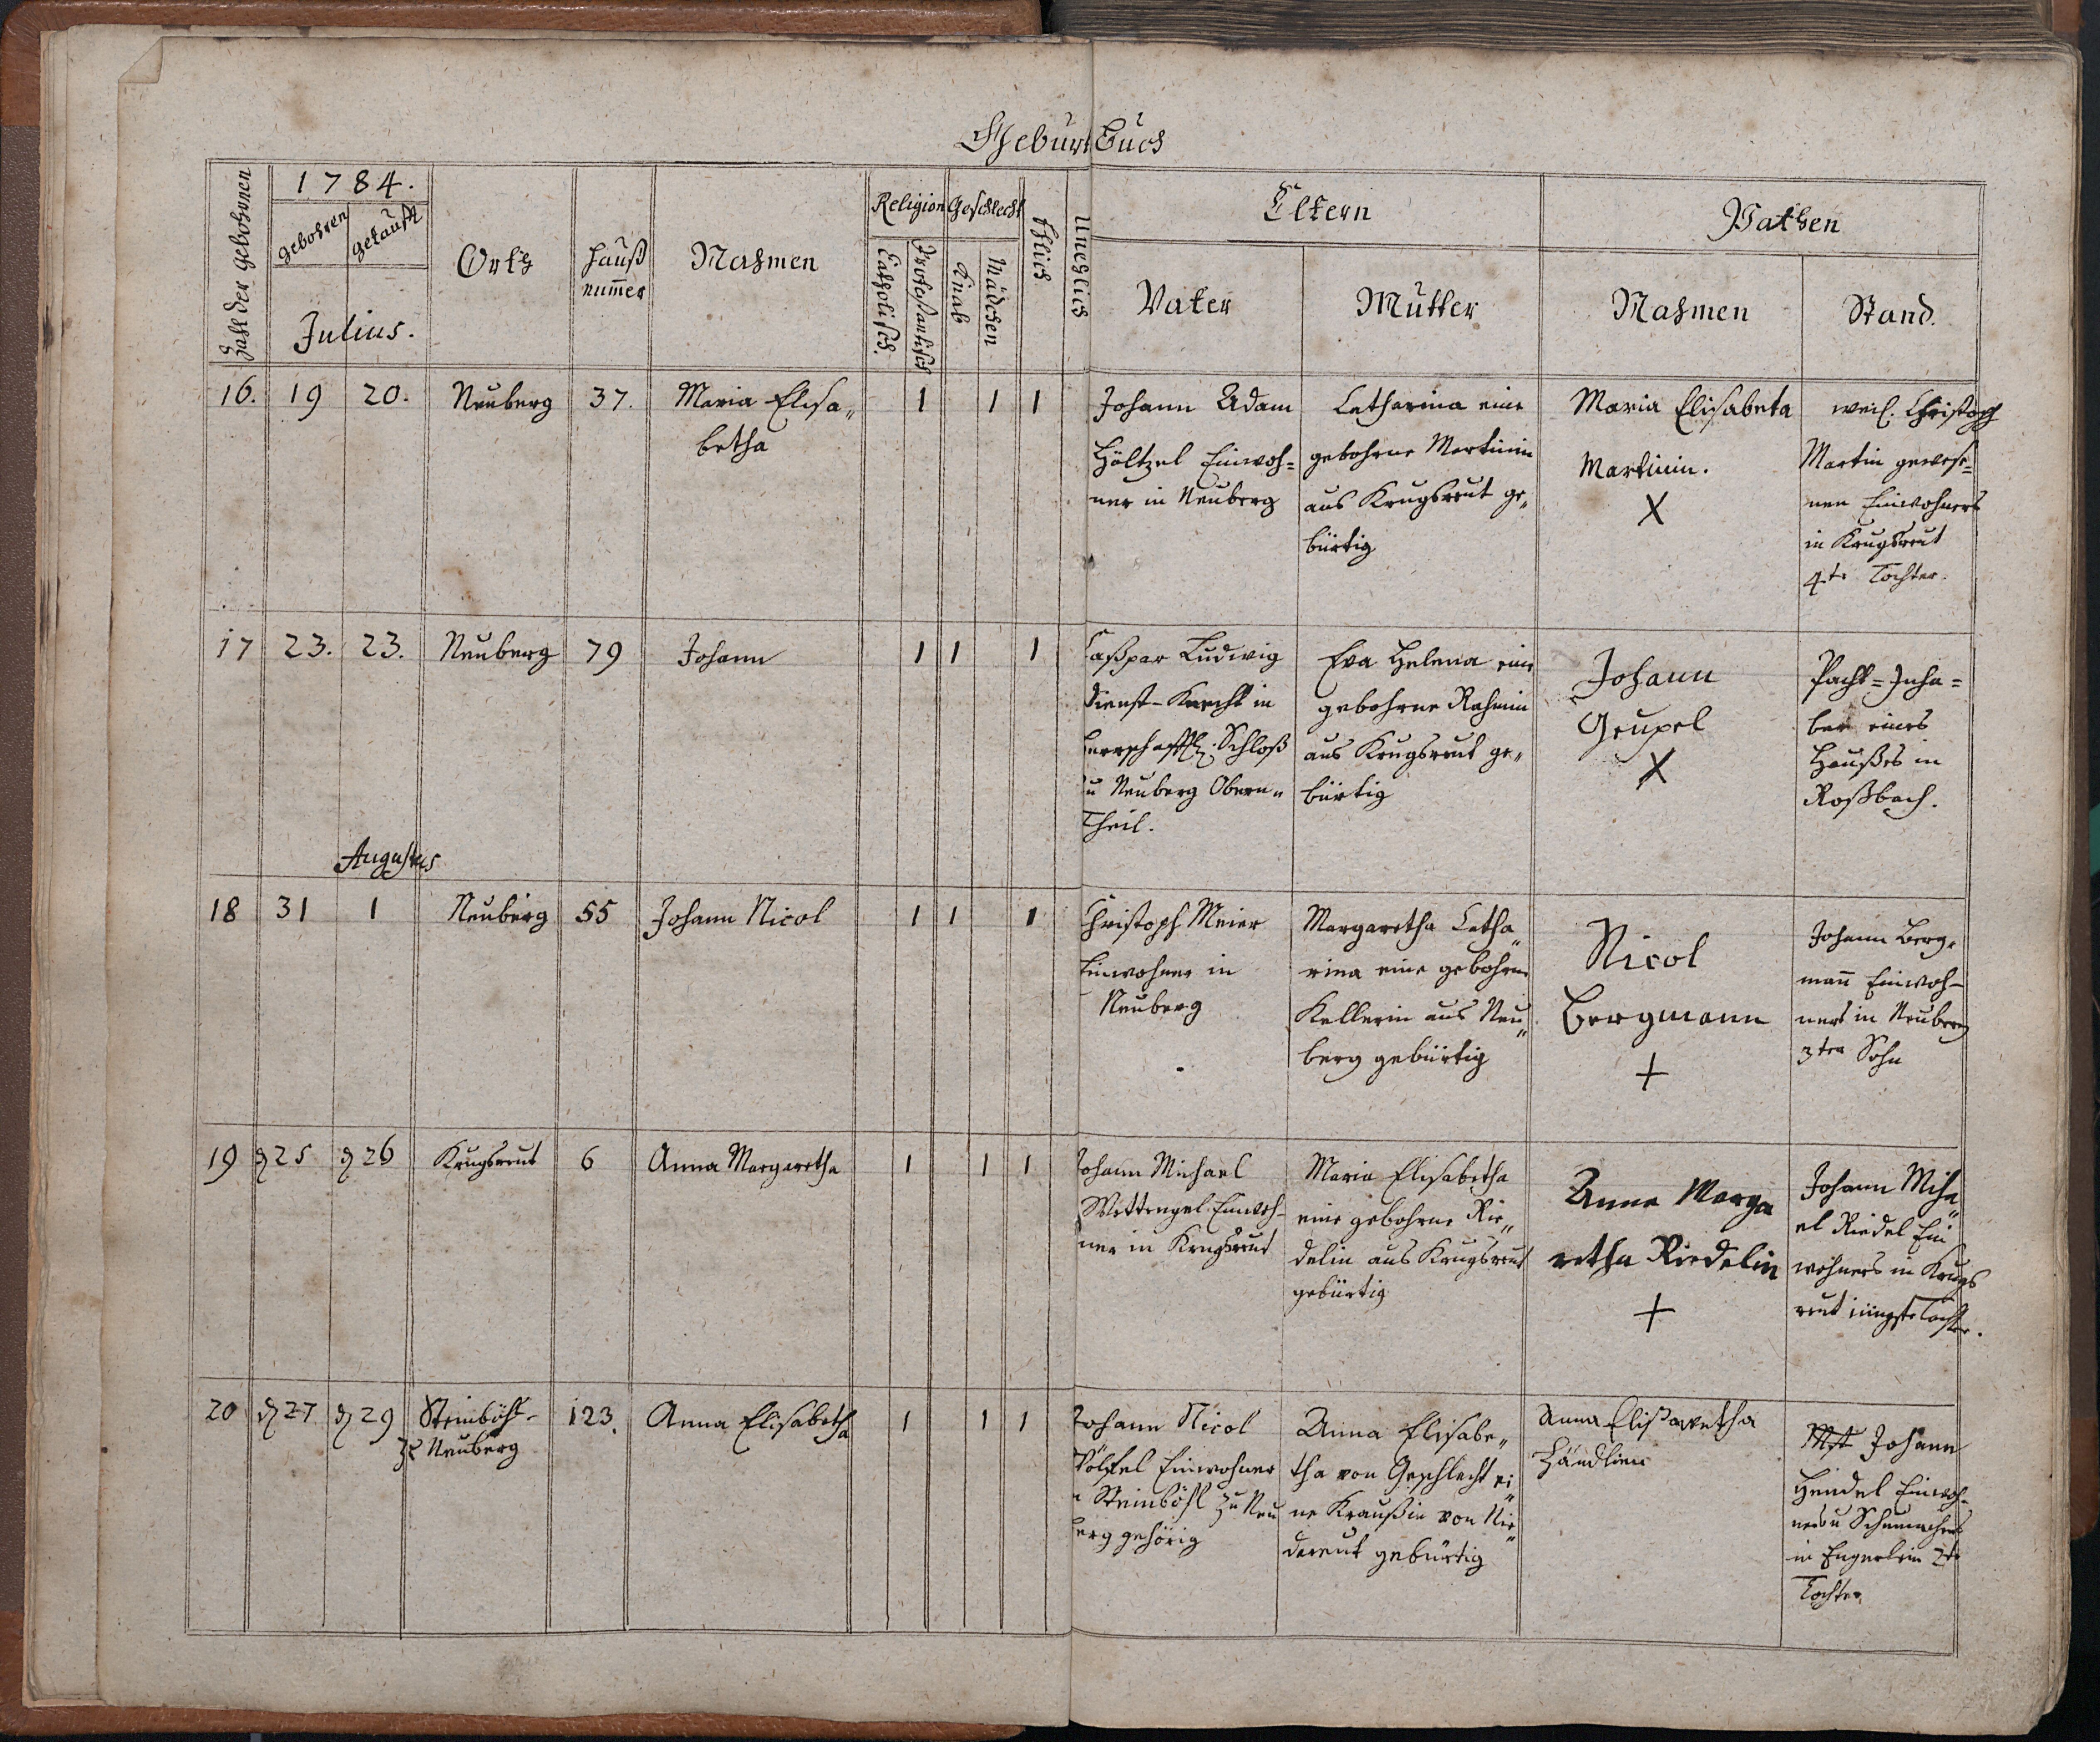 Geburt Buch
Zahl der gebohrnen
1784.
gebohren
getauft
Julius.
Orth
Hauß
num̄er
Nahmen
Religion
Catholisch.
Protestantisch
Geschlecht
Knab
Mädchen
Ehlich
Unehlich
Eltern
Vater
Mutter
Pathen
Nahmen
Stand.
16. 19 20. Neuberg 37. Maria Elisa„
betha
1 1 1
Johann Adam
Höltzel Einwoh=
ner in Neuberg
Catharina eine
gebohrne Martinin
aus Krugsreut ge„
bürtig
Maria Elisabeta
Martinin.
X
weil. Christoph
Martin gewese=
nen Einwohners
in Krugsreut
4te Tochter.
17 23. 23. Neuberg 79 Johann
1 1 1
Caßpar Ludwig
Dienst-Knecht in
herrschafftl. Schloß
zu Neuberg Obern„
Theil.
Eva Helena eine
gebohrne Rahmin
aus Krugsreut ge„
bürtig
Johann
Geupel
X
Pacht=Inha=
ber eines
Haußes in
Roßbach.
Augustus
18 31 1 Neuberg 55 Johann Nicol
1 1 1
Christoph Meier
Einwohner in
Neuberg
Margaretha Catha„
rina eine gebohrne
Kellerin aus Neu„
berg gebürtig
Nicol
Bergmann
+
Johann Berg„
man̄ Einwoh-
ners in Neuberg
3ten Sohn
19 d 25 d 26 Krugsreut 6 Anna Margaretha
1 1 1
Johann Michael
Wettengel Einwoh-
ner in Krugsreut
Maria Elisabetha
eine gebohrne Rie„
delin aus Krugsreut
gebürtig
Anna Marga
retha Riedelin
+
Johann Micha„
el Riedel Ein
wohners in Krugs
reut jüngste Tochter.
20 d 27 d 29 Steinböhl-
zu Neuberg
123. Anna Elisabetha
1 1 1
Johann Nicol
Pölzel Einwohner
in Steinböhl zu Neu
berg gehörig
Anna Elisabe„
tha von Geschlecht ei„
ne Kraußin von Nie„
dereut gebürtig
Anna Elisawetha
Händlien
Mstr Johann
Hendel Einwoh-
ners u Schumachers
in 2te
Tochter